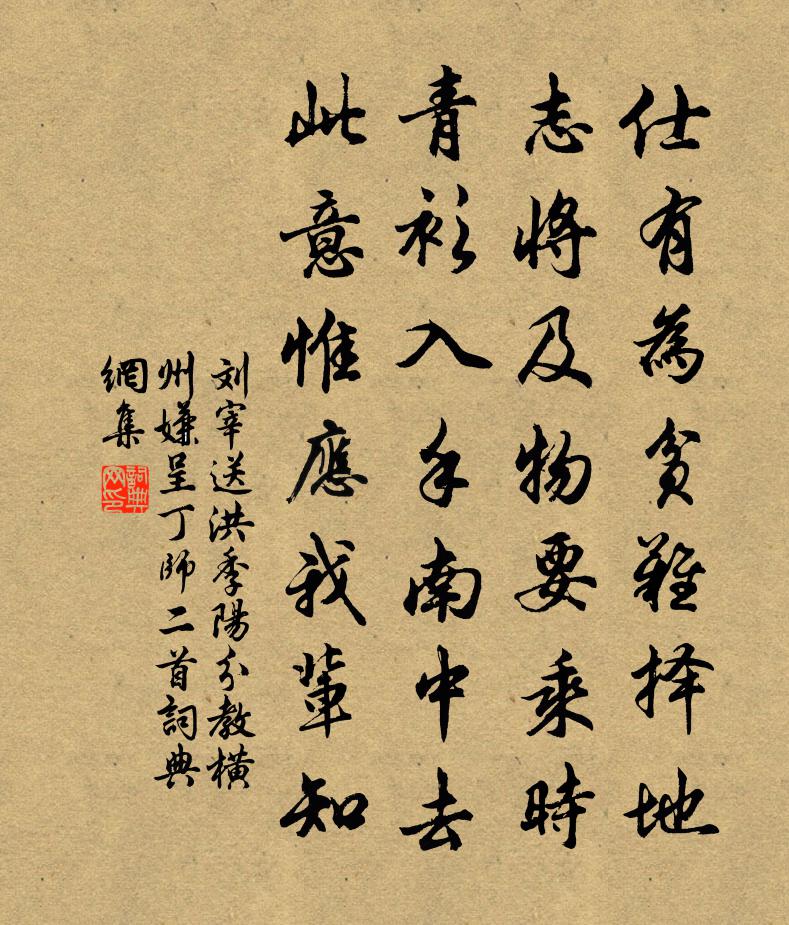 仕有為貧難择地
志將及物要乘時
青衫入手南中去
此意惟應我輩知
刘宰送洪季陽分教橫
州嫌呈丁師二首詞典
網集
詞典
网印